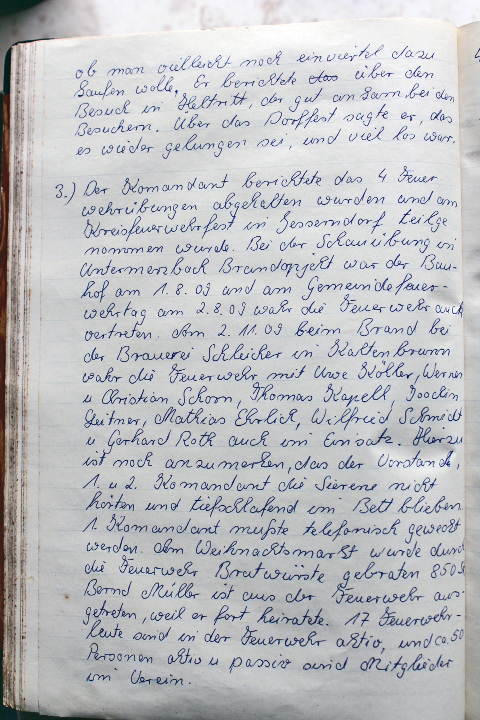 ob man vielleicht noch ein viertel dazu
Kaufen wolle. Er berichtete das über den
Besuch in Heltritt, der gut an kam bei den
Besuchern. Über das Dorffest sagte er, das
es wieder gelungen sei, und viel los war.
3.) Der Komandant berichtete das 4 Feuer
wehrübungen abgehalten wurden und am
Kreisfeuerwehrfest in Gesserndorf teilge
nommen wurde. Bei der Schauübung in
Untermerzbach Brandopjekt war der Bau-
hof am 1.8.09 und am Gemeindefeuer-
wehrtag am 2.8.09 wahr die Feuerwehr auch
vertreten. Am 2.11.09 beim Brand bei
der Brauerei Schleicher in Kaltenbrunn
wahr die Feuerwehr mit Uwe Köhler, Werner
u Christian Schorn, Thomas Kapell, Joachim
Leitner, Mathias Ehrlich, Wilfried Schmidt
u Gerhard Roth auch im Einsatz. Hierzu
ist noch anzumerken, das der Vorstand,
1. u 2. Komandant die Sierene nicht
hörten und tiefschlafend im Bett blieben
1. Komandant mußte telefonisch geweckt
werden. Am Weihnachtsmarkt wurde durch
die Feuerwehr Bratwürste gebraten 850 St
Bernd Müller ist aus der Feuerwehr aus-
getreten, weil er fort heiratete. 17 Feuerwehr-
leute sind in der Feuerwehr aktiv, und ca. 50
Personen aktiv u passiv sind Mitglieder
im Verein.